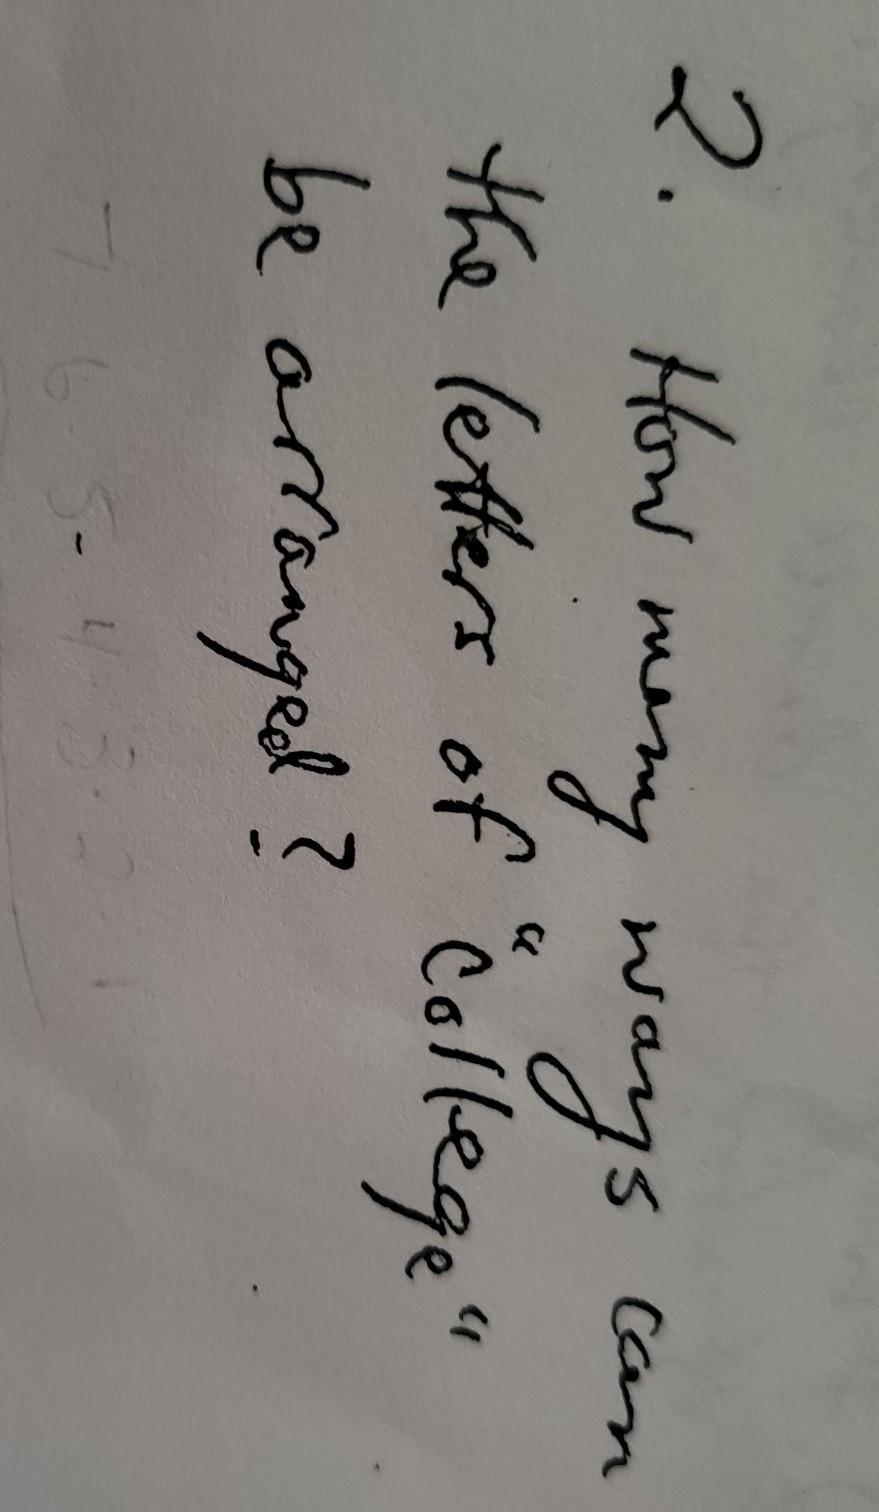 2. How many ways can
the letters of "College"
be arranged?
7 6 5. 4. 3. 2. 1